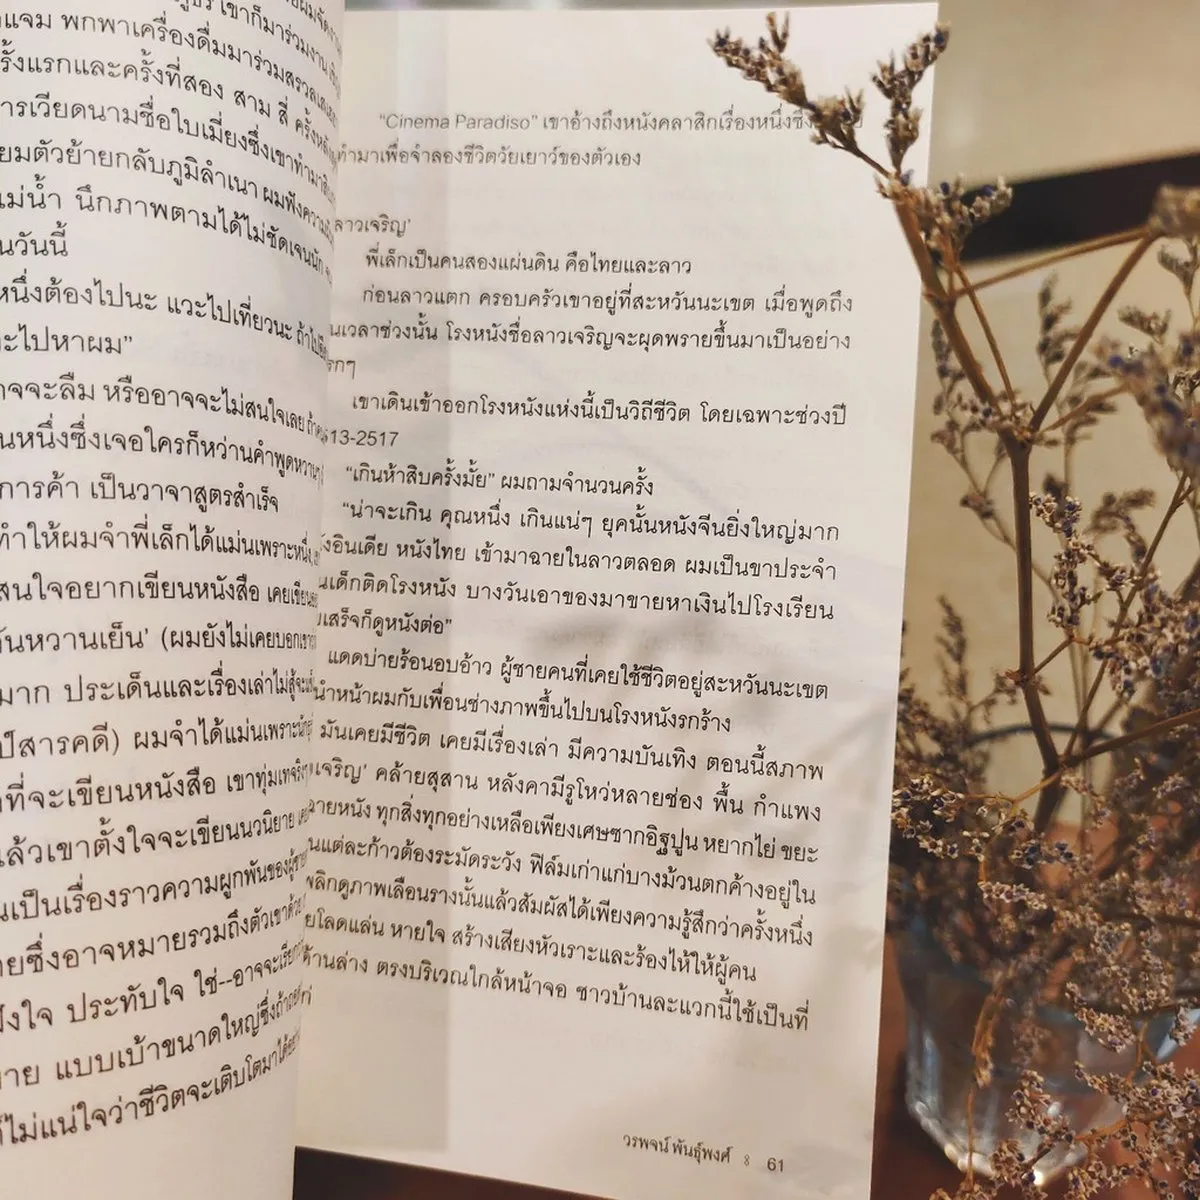 เขาก็มาร่วมงาน
แจม พกพาเครื่องดื่มมาร่วมสรวลเสเฮฮา
รั้งแรกและครั้งที่สอง สาม สี่ ครั้งหลัง
การเวียดนามชื่อใบเมี่ยงซึ่งเขาทำมา
ยมตัวย้ายกลับภูมิลำเนา ผมฟังความ
แม่น้ำ นึกภาพตามได้ไม่ชัดเจนนัก
นวันนี้
หนึ่งต้องไปนะ แวะไปเที่ยวนะ ถ้าไม่
ะไปหาผม”
าจจะลืม หรืออาจจะไม่สนใจเลย ถ้า
นหนึ่งซึ่งเจอใครก็หว่านคำพูดหวานๆ
การค้า เป็นวาจาสูตรสำเร็จ
ทำให้ผมจำพี่เล็กได้แม่นเพราะหนึ่ง
สนใจอยากเขียนหนังสือ เคยเขียน
ันหวานเย็น’ (ผมยังไม่เคยบอกเขา
มาก ประเด็นและเรื่องเล่าไม่สู้จะ
ป์สารคดี) ผมจำได้แม่นเพราะ
ที่จะเขียนหนังสือ เขาทุ่มเทจริงๆ
แล้วเขาตั้งใจจะเขียนนวนิยาย
นเป็นเรื่องราวความผูกพันของผู้ชาย
ายซึ่งอาจหมายรวมถึงตัวเขาด้วย
ังใจ ประทับใจ ใช่--อาจจะเรียก
าย แบบเบ้าขนาดใหญ่ซึ่งถ้า
ก็ไม่แน่ใจว่าชีวิตจะเติบโตมาได้
“Cinema Paradiso” เขาอ้างถึงหนังคลาสิกเรื่องหนึ่งซึ่ง
ทำมาเพื่อจำลองชีวิตวัยเยาว์ของตัวเอง
ลาวเจริญ’
พี่เล็กเป็นคนสองแผ่นดิน คือไทยและลาว
ก่อนลาวแตก ครอบครัวเขาอยู่ที่สะหวันนะเขต เมื่อพูดถึง
นเวลาช่วงนั้น โรงหนังชื่อลาวเจริญจะผุดพรายขึ้นมาเป็นอย่าง
รกๆ
เขาเดินเข้าออกโรงหนังแห่งนี้เป็นวิถีชีวิต โดยเฉพาะช่วงปี
13-2517
“เกินห้าสิบครั้งมั้ย” ผมถามจำนวนครั้ง
“น่าจะเกิน คุณหนึ่ง เกินแน่ๆ ยุคนั้นหนังจีนยิ่งใหญ่มาก
ังอินเดีย หนังไทย เข้ามาฉายในลาวตลอด ผมเป็นขาประจำ
นเด็กติดโรงหนัง บางวันเอาของมาขายหาเงินไปโรงเรียน
เสร็จก็ดูหนังต่อ”
แดดบ่ายร้อนอบอ้าว ผู้ชายคนที่เคยใช้ชีวิตอยู่สะหวันนะเขต
นำหน้าผมกับเพื่อนช่างภาพขึ้นไปบนโรงหนังรกร้าง
มันเคยมีชีวิต เคยมีเรื่องเล่า มีความบันเทิง ตอนนี้สภาพ
เจริญ’ คล้ายสุสาน หลังคามีรูโหว่หลายช่อง พื้น กำแพง
ฉายหนัง ทุกสิ่งทุกอย่างเหลือเพียงเศษซากอิฐปูน หยากไย่ ขยะ
นแต่ละก้าวต้องระมัดระวัง ฟิล์มเก่าแก่บางม้วนตกค้างอยู่ใน
พลิกดูภาพเลือนรางนั้นแล้วสัมผัสได้เพียงความรู้สึกว่าครั้งหนึ่ง
ยโลดแล่น หายใจ สร้างเสียงหัวเราะและร้องไห้ให้ผู้คน
ด้านล่าง ตรงบริเวณใกล้หน้าจอ ชาวบ้านละแวกนี้ใช้เป็นที่
วรพจน์ พันธุ์พงศ์ 61